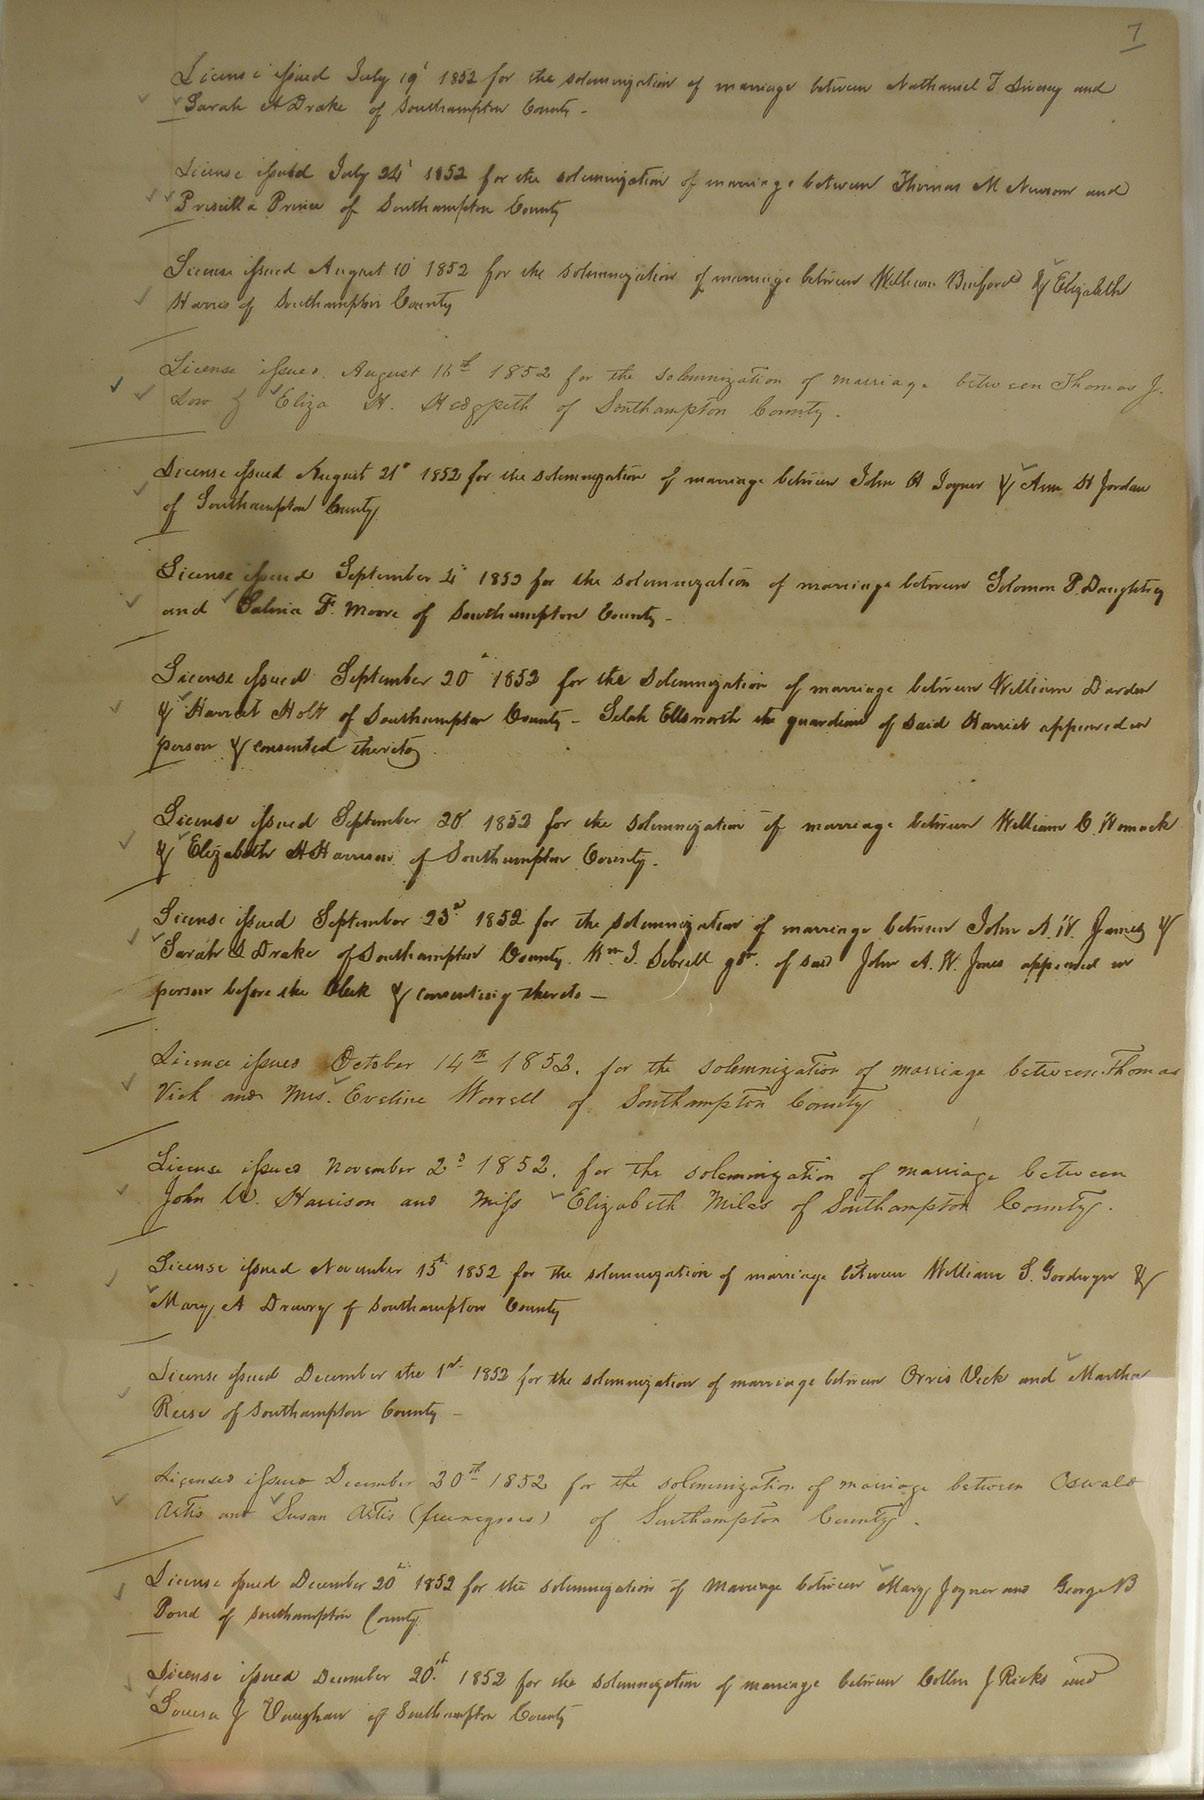 7
License issued July 19' 1852 for the solemnization of marriage between Nathaniel T. and
Sarah A Drake of Southampton County -
License issued July 24' 1852 for the solemnization of marriage between Thomas M Newsom and
Priscilla Prince of Southampton County
License issued August 10' 1852 for the solemnization of marriage between William Binford & Elizabeth
Harris of Southampton County
License issued August 16th 1852 for the solemnization of marriage between Thomas J.
Low & Eliza H. Hedgpeth of Southampton County.
License issued August 21" 1852 for the solemnization of marriage between John A Joyner & Ann H Jordan
of Southampton County
License issued September 4" 1852 for the solemnization of marriage between Solomon P. Daughtrey
and F. Moore of Southampton County -
License issued September 20" 1852 for the solemnization of marriage between William Darden
& Harriet Holt of Southampton County - Selah Ellsworth the guardian of said Harriet appeared in
person & consented thereto
License issued September 20' 1852 for the solemnization of marriage between William C. Womack
& Elizabeth H Harrison of Southampton County.
License issued September 23d 1852 for the solemnization of marriage between John A. W. James &
Sarah Drake of Southampton County. Wm. J. Sebrell gdn. of said John A. W. Jones appeared in
person before the Clerk & consenting thereto -
Licence issued October 14th 1852. for the solemnization of marriage between Thomas
Vick and Mrs. Eveline Worrell of Southampton County
License issued November 2d 1852. for the solemnization of marriage between
John W. Harrison and Miss Elizabeth Miles of Southampton County.
License issued November 15th 1852 for the solemnization of marriage between William S. Goodwyn &
Mary A Drewry of Southampton County
License issued December the 1st 1852 for the solemnization of marriage between Orris Vick and Martha
Reese of Southampton County -
Licensed issued December 20th 1852 for the solemnization of marriage between Oswald
Artis and Susan Artis (free negroes) of Southampton County.
License issued December 20" 1852 for the solemnization of Marriage between Mary Joyner and George B
Pond of Southampton County
License issued December 20th 1852 for the solemnization of marriage between Collin J Ricks and
Louisa J Vaughan of Southampton County